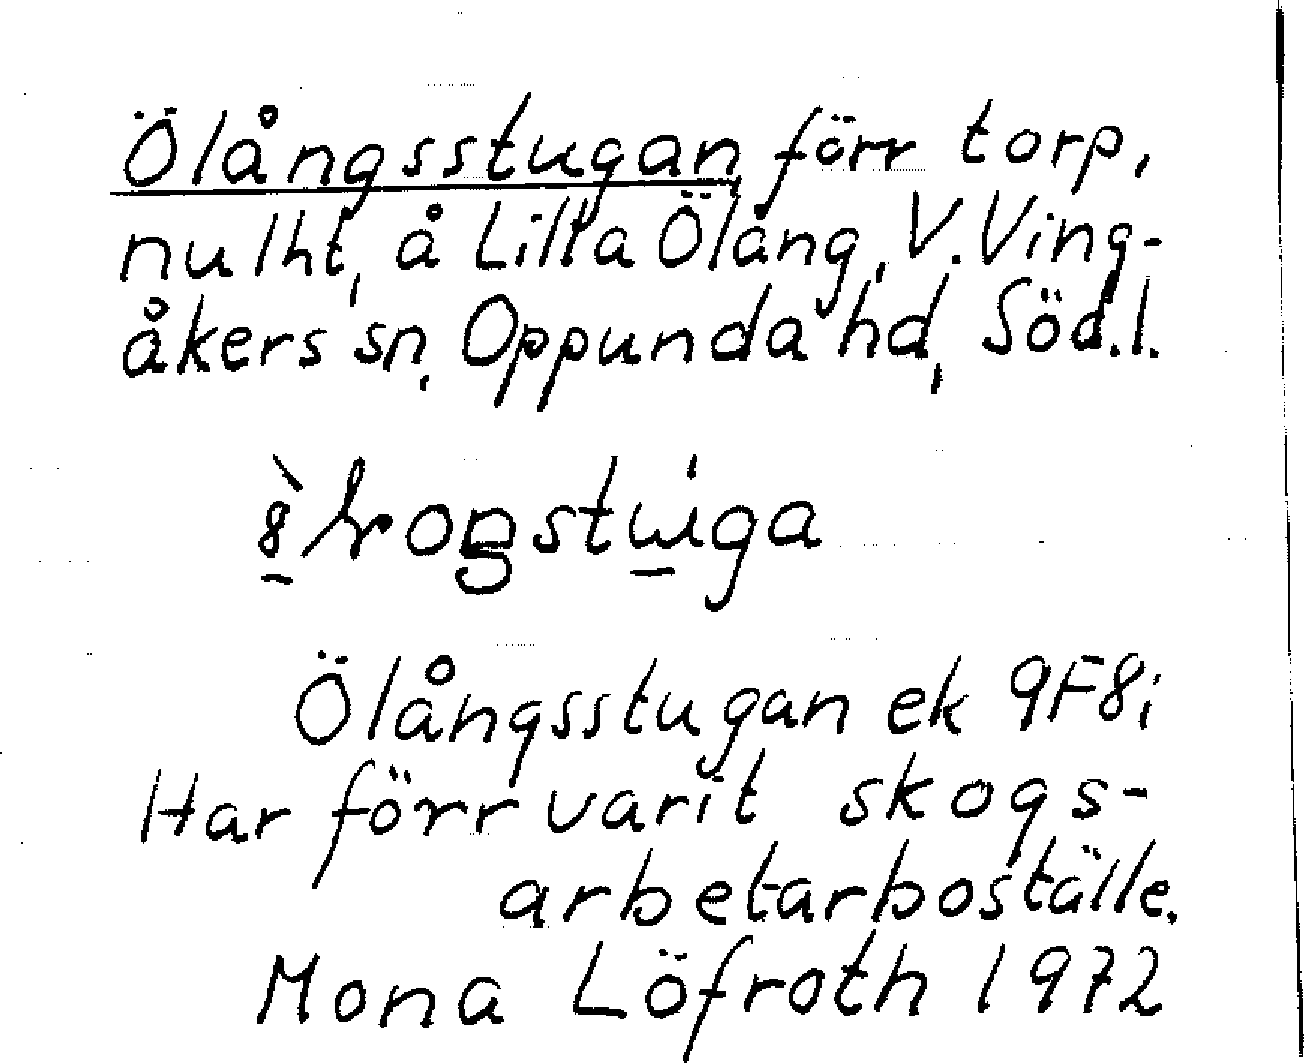 Ölångsstugan förr torp,
nu lht, å Lilla Ölång, V. Ving-
åkers sn, Oppunda hd, Söd.l.
Ölångsstugan ek 9F8i
Har förr varit skogs-
arbetarboställe.
Mona Löfroth 1972